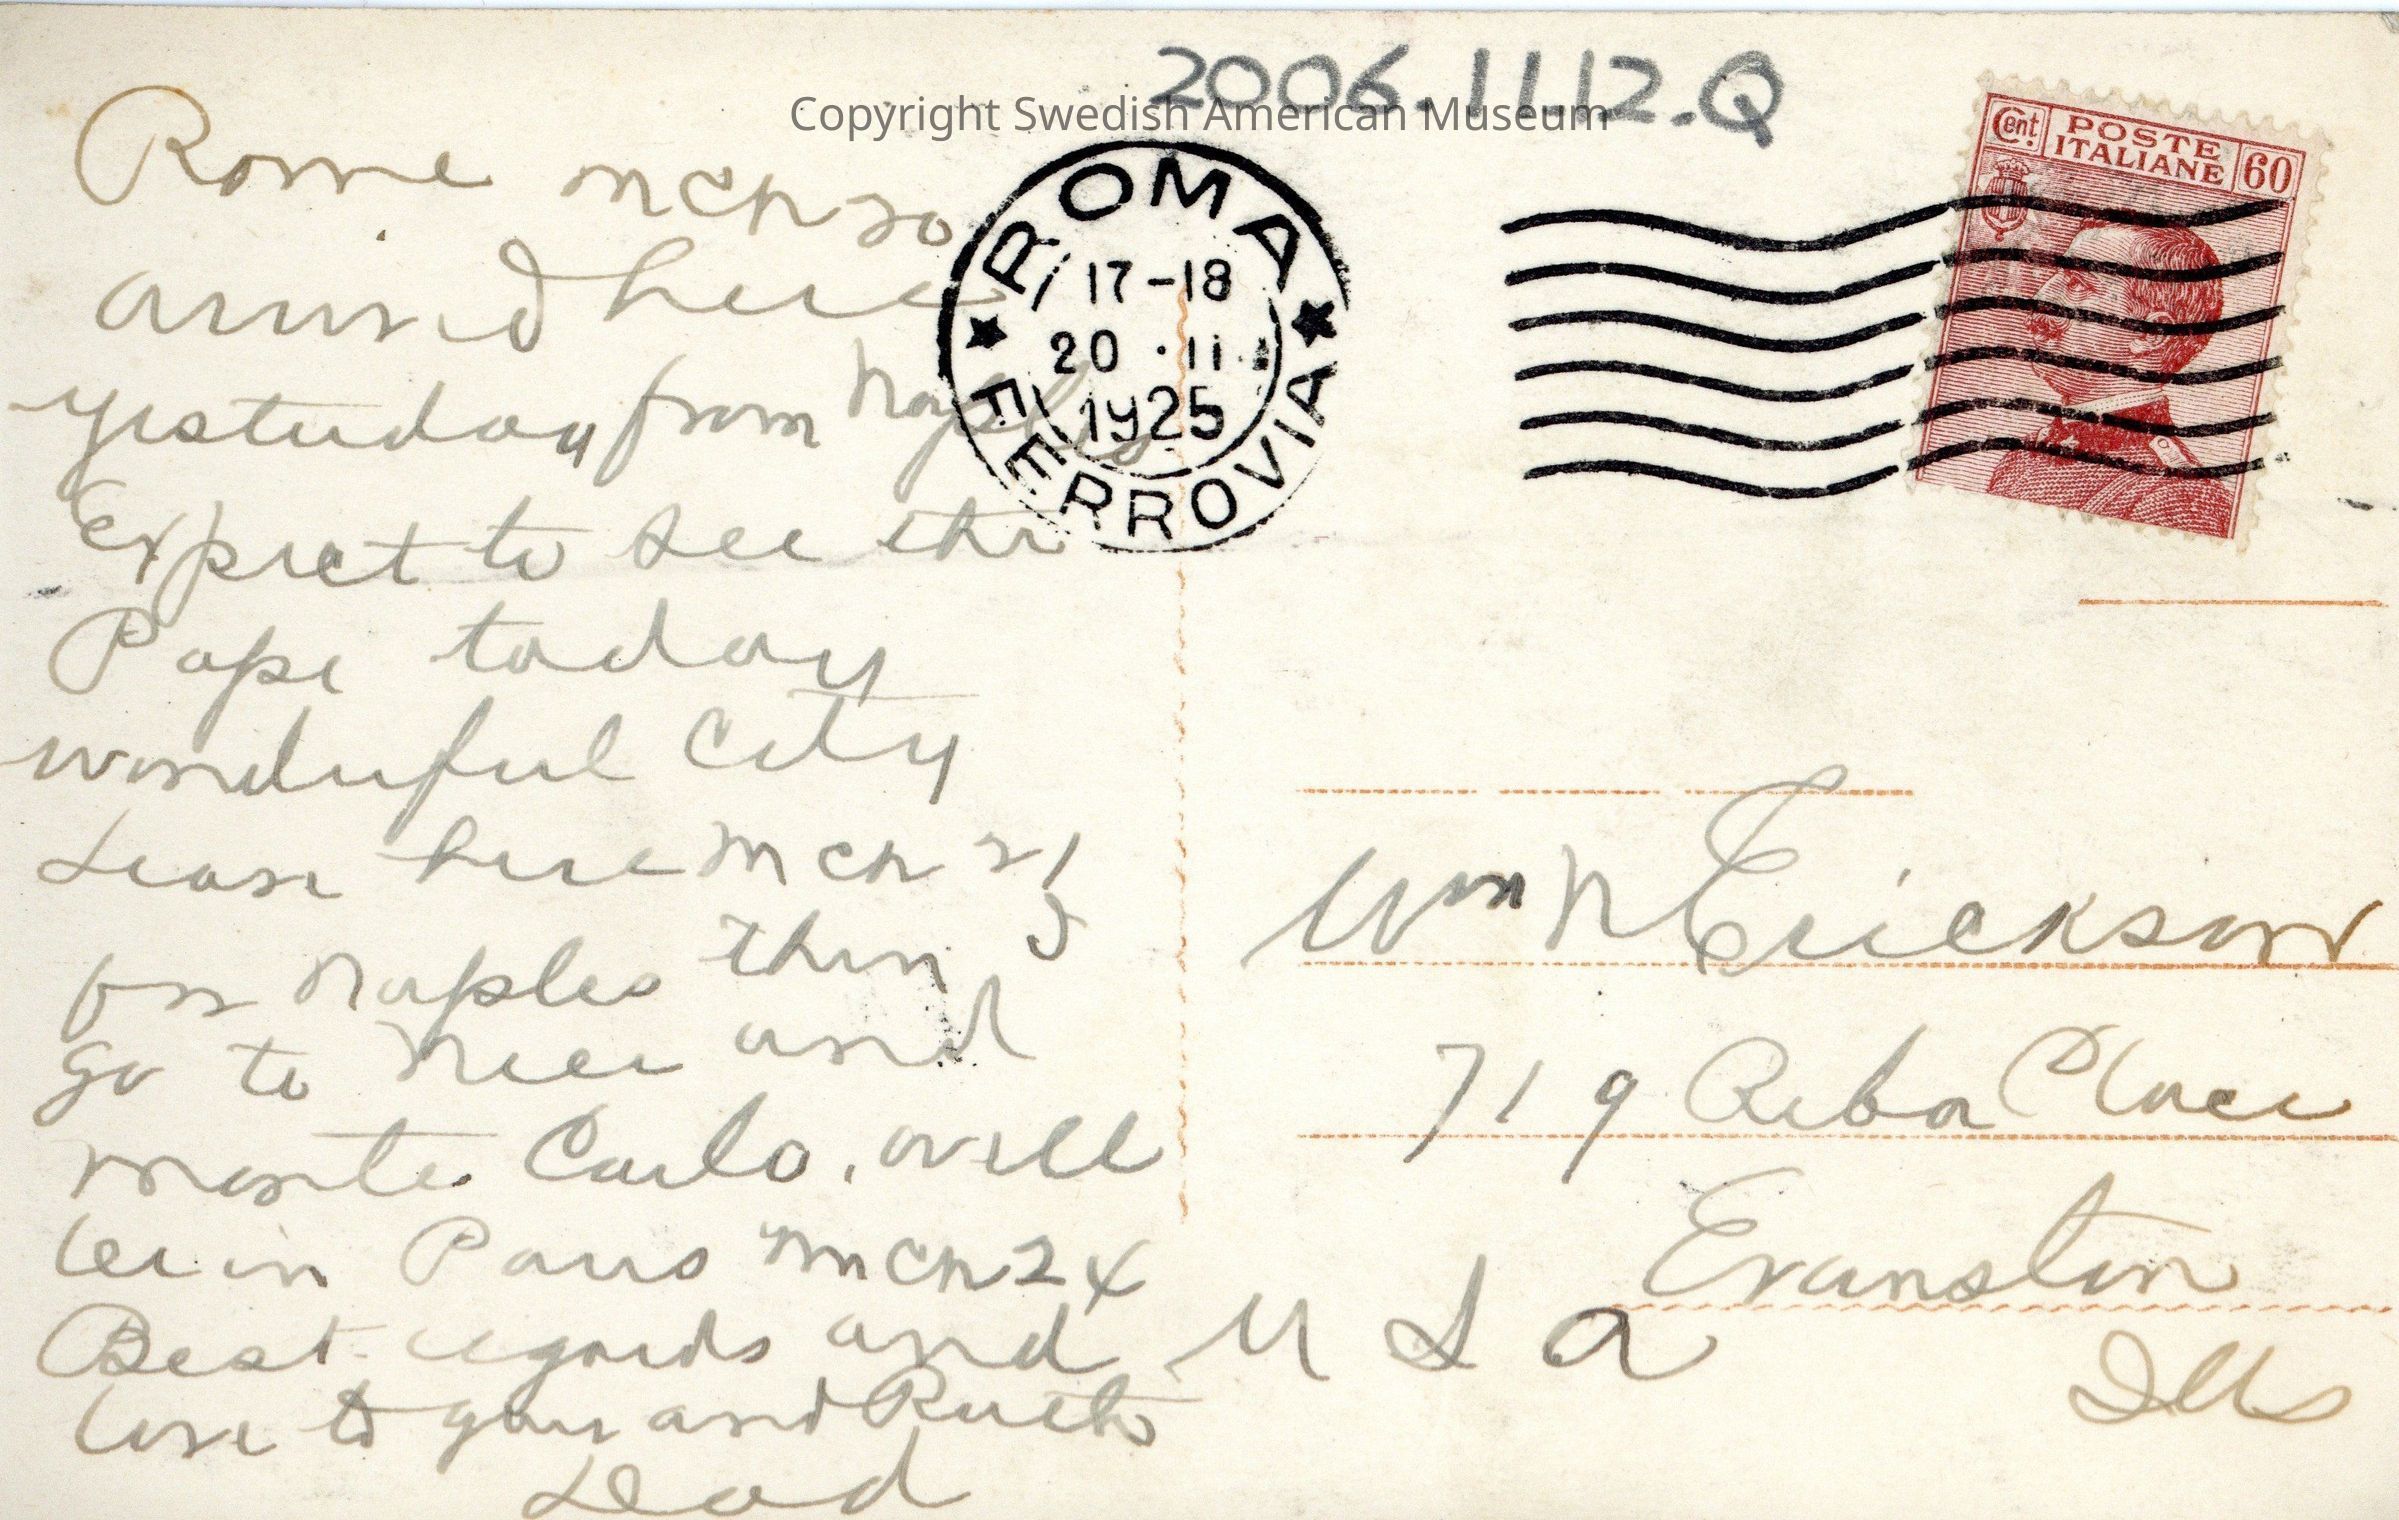 2006.11.12.Q
Copyright Swedish American Museum
Cent. POSTE ITALIANE 60
ROMA
17-18
20 · 11
1925
FERROVIA
Rome mch 20
arrived here
yesterday from Naples
Expect to see the
Pope today
wonderful City
Leave here mch 21
for Naples then
go to Nice and
Monte Carlo. will
be in Paris mch 24
Best regards and
love to you and Ruth
Dad
Wm N Erickson
719 Reba Place
Evanston
Ills
U S A